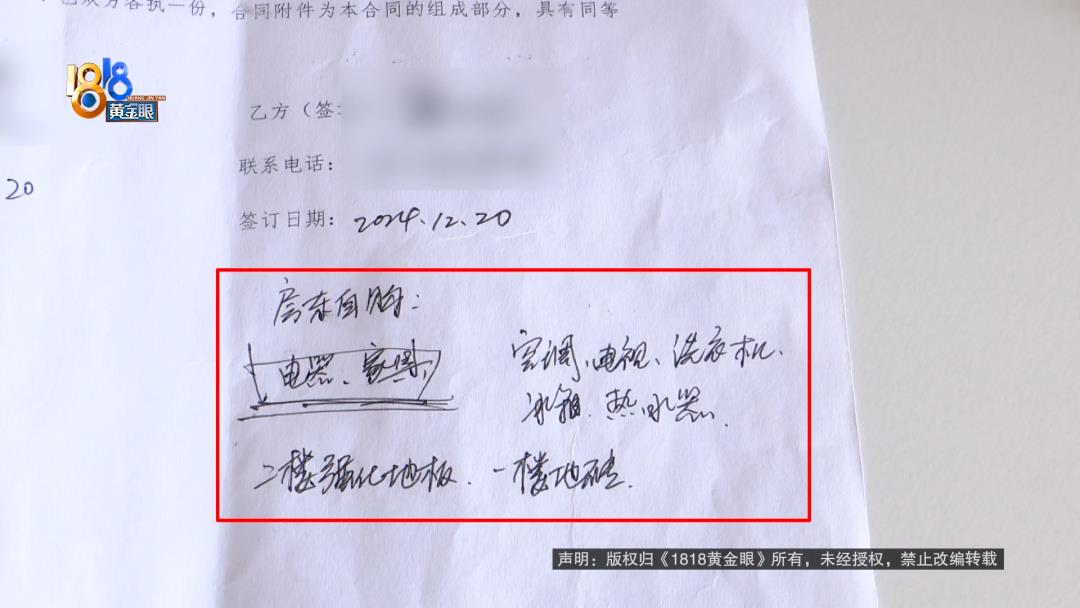 乙双方各执一份，合同附件为本合同的组成部分，具有同等
1818
HUANG JIN YAN
黄金眼
乙方（签
联系电话：
20
签订日期：2024.12.20
房东自购：
电器、家具，
空调、电视、洗衣机、
冰箱、热水器、
二楼强化地板、一楼地砖.
声明：版权归《1818黄金眼》所有，未经授权，禁止改编转载